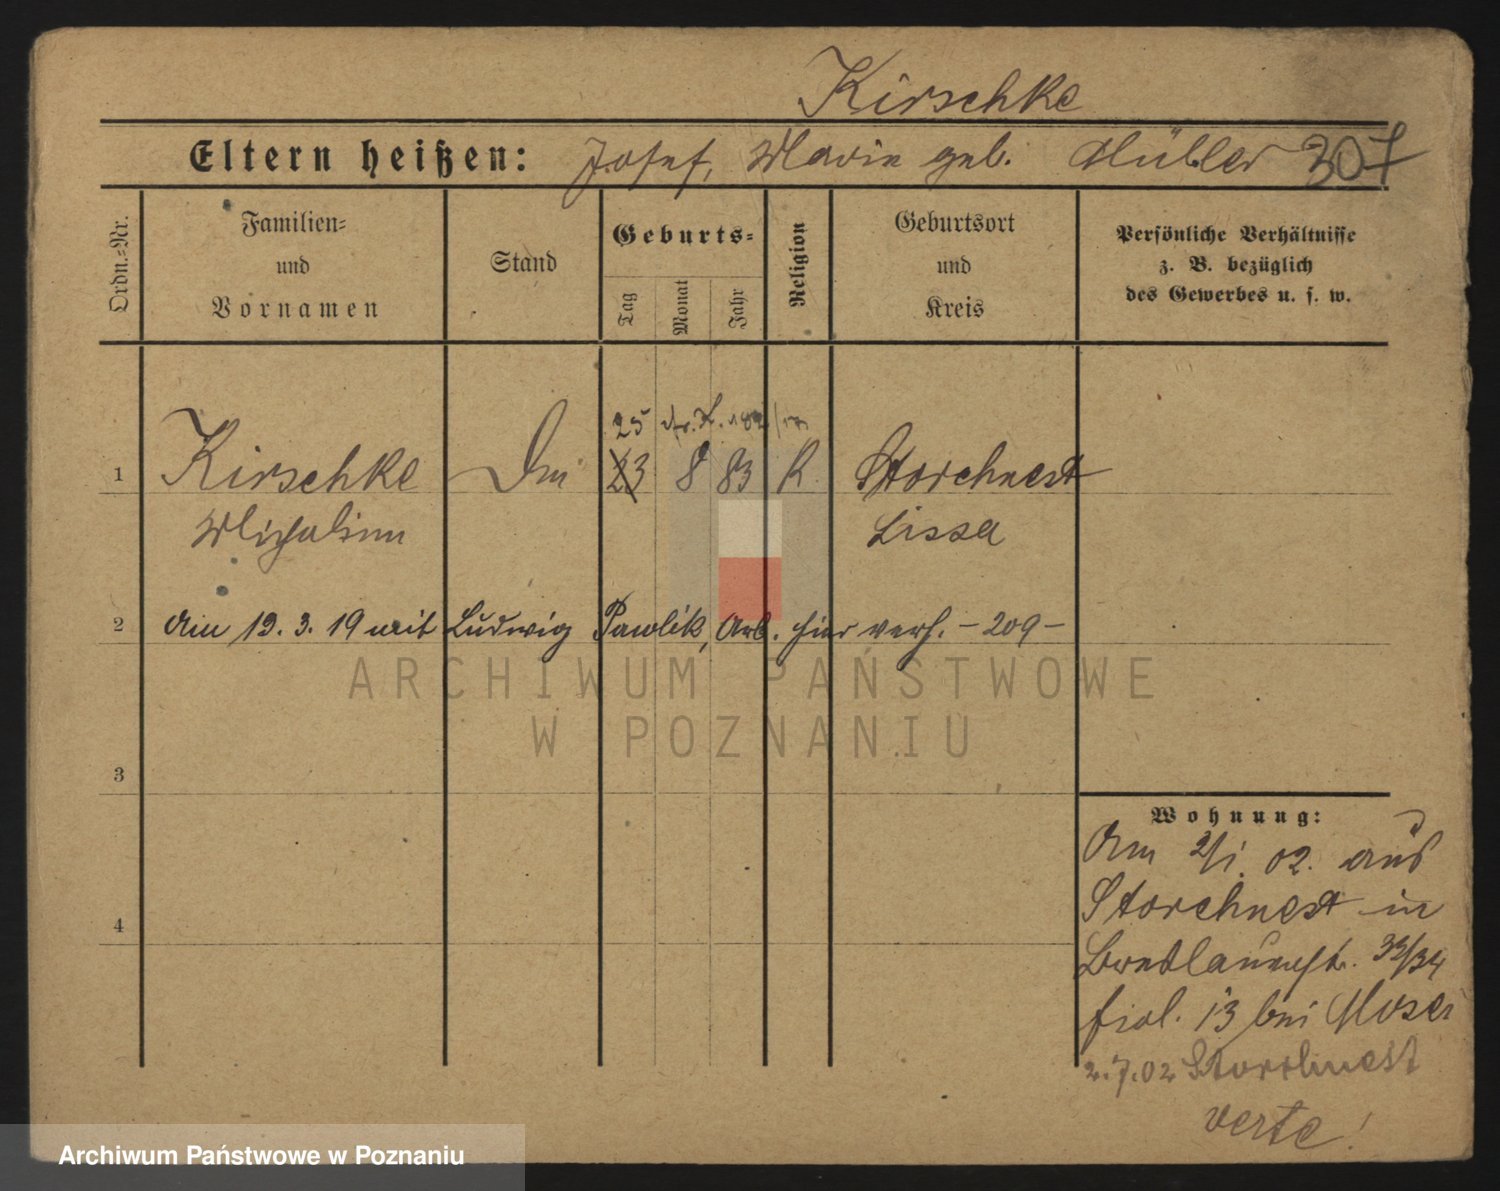 Kirschke
Eltern heißen: Josef, Marie geb. Müller 307
Ordn.-Nr.
Familien-
und
Vornamen
Stand
Geburts-
Tag
Monat
Jahr
Religion
Geburtsort
und
Kreis
Persönliche Verhältnisse
z. B. bezüglich
des Gewerbes u. s. w.
25
1 Kirschke 23 8 83 K. Storchnest
Lissa
2 Am 13. 3. 19 mit Ludwig Pawlik, Arb. hier verh. - 209 -
3
4
Wohnung:
Am 2/1. 02. aus
Storchnest in
Breslauerstr. 33/34
bei Moser
2.7.02 Storchnest
verte!
ARCHIWUM PAŃSTWOWE
W POZNANIU
Archiwum Państwowe w Poznaniu